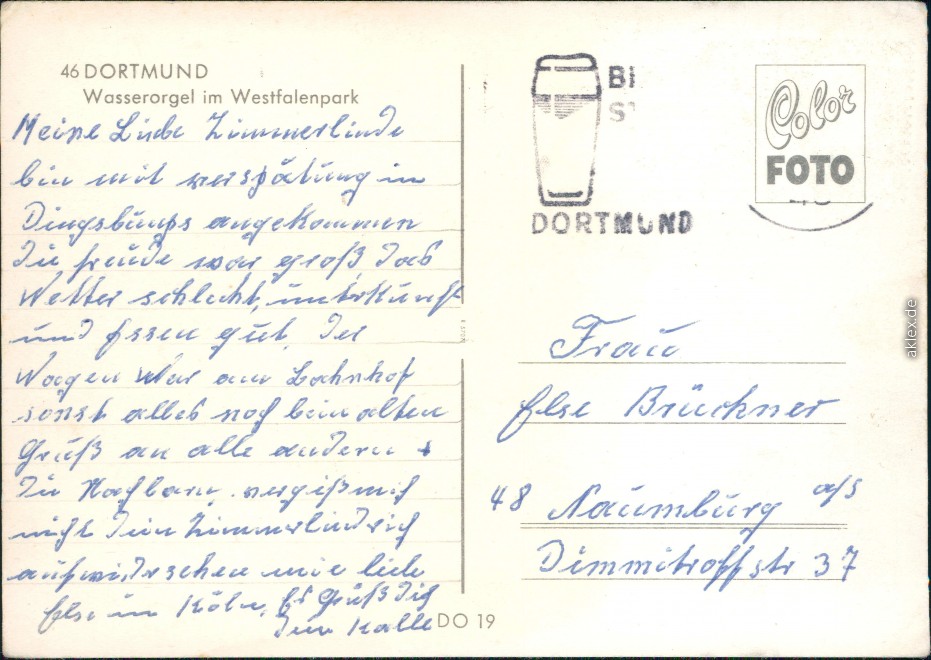 46 DORTMUND
Wasserorgel im Westfalenpark
Meine Liebe Zimmerlinde
bin mit verspätung in
Dingsbumps angekommen
Die freude war groß, Das
Wetter schlecht, unterkunft
und Essen gut, Der
Wagen War am Bahnhof
sonst alles noch beim alten
Grüß an alle andern +
Die Nachbarn, vergißmich
nicht Dein Zimmerlindrich
aufwiedersehen meine liebe
Else in Köln, Es Grüßt Dich
Dein Kalle
DO 19
BI
S
DORTMUND
Color
FOTO
Frau
Else Brückner
48 Naumburg a/s
Dimmitroffstr 37
aklex.de